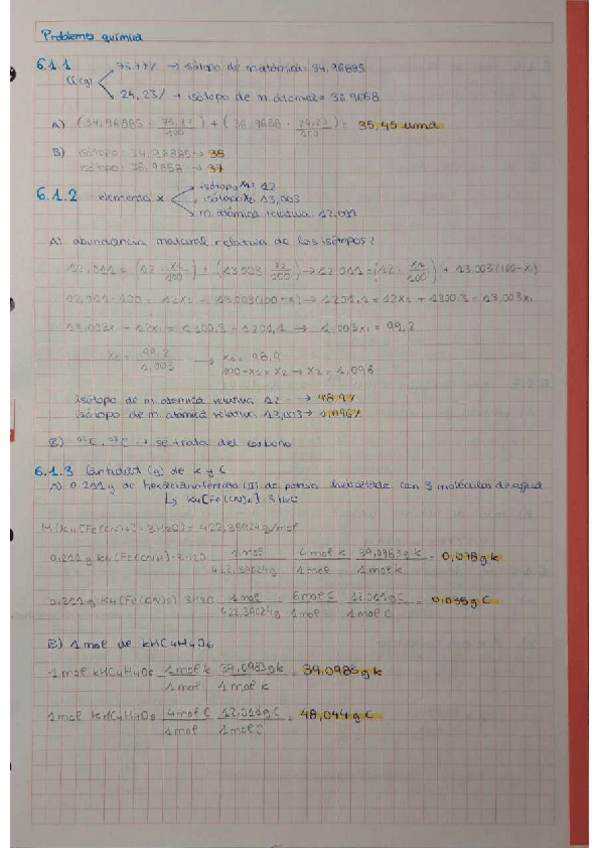 Problemas química
6.1.1
75.77% → isótopo de m.atómica: 34.96885
Cl(g)
24,23% → isótopo de m. atómica = 36.9658
A) (34,96885 · 75.77/100) + (36,9658 · 24,23/100) = 35,45 uma
B) isótopo: 34,96885 → 35
isótopo: 36,9658 → 37
6.1.2 elemento x
isótopo 12
isótopo 13,003
m. atómica relativa: 12,011
A) abundancia natural relativa de los isótopos?
12,011 = (12 · x1/100) + (13.003 · x2/100) → 12,011 = (12 · x1/100) + 13.003(100-x1)
12,011 · 100 = 12x1 - 13,003(100-x) → 1201,1 = 12x1 + 1300,3 - 13,003x1
13,003x - 12x1 = 1300,3 - 1201,1 → 1,003x1 = 99,2
x1 = 99,2/1,003 → x1 = 98,9
100-x1 = x2 → x2 = 1,096
isótopo de m. atómica relativa 12 →
isótopo de m. atómica relativa 13,003 →
B) C, C → se trata del carbono
6.1.3 Cantidad (g) de K y C
A) 0.211 g de hexacianoferrato (II) de potasio hidratado con 3 moléculas de agua
↳ K4[Fe(CN)6] · 3H2O
M(K4[Fe(CN)6] · 3H2O) = 422,39024 g/mol
0.211 g K4(Fe(CN)6) · 3H2O · 1 mol/422,39024g · 4 mol K/1 mol · 39,0983g K/1 mol K = 0,078 g K
0.211 g K4(Fe(CN)6) 3H2O · 1 mol/422,39024g · 6 mol C/1 mol · 12.011g C/1 mol C = 0,036 g C
B) 1 mol de KHC4H4O6
1 mol KHC4H4O6 · 1 mol K/1 mol · 39,0983gK/1 mol K = 39,0983 g K
1 mol KHC4H4O6 · 4 mol C/1 mol · 12,011g C/1 mol C = 48,044 g C